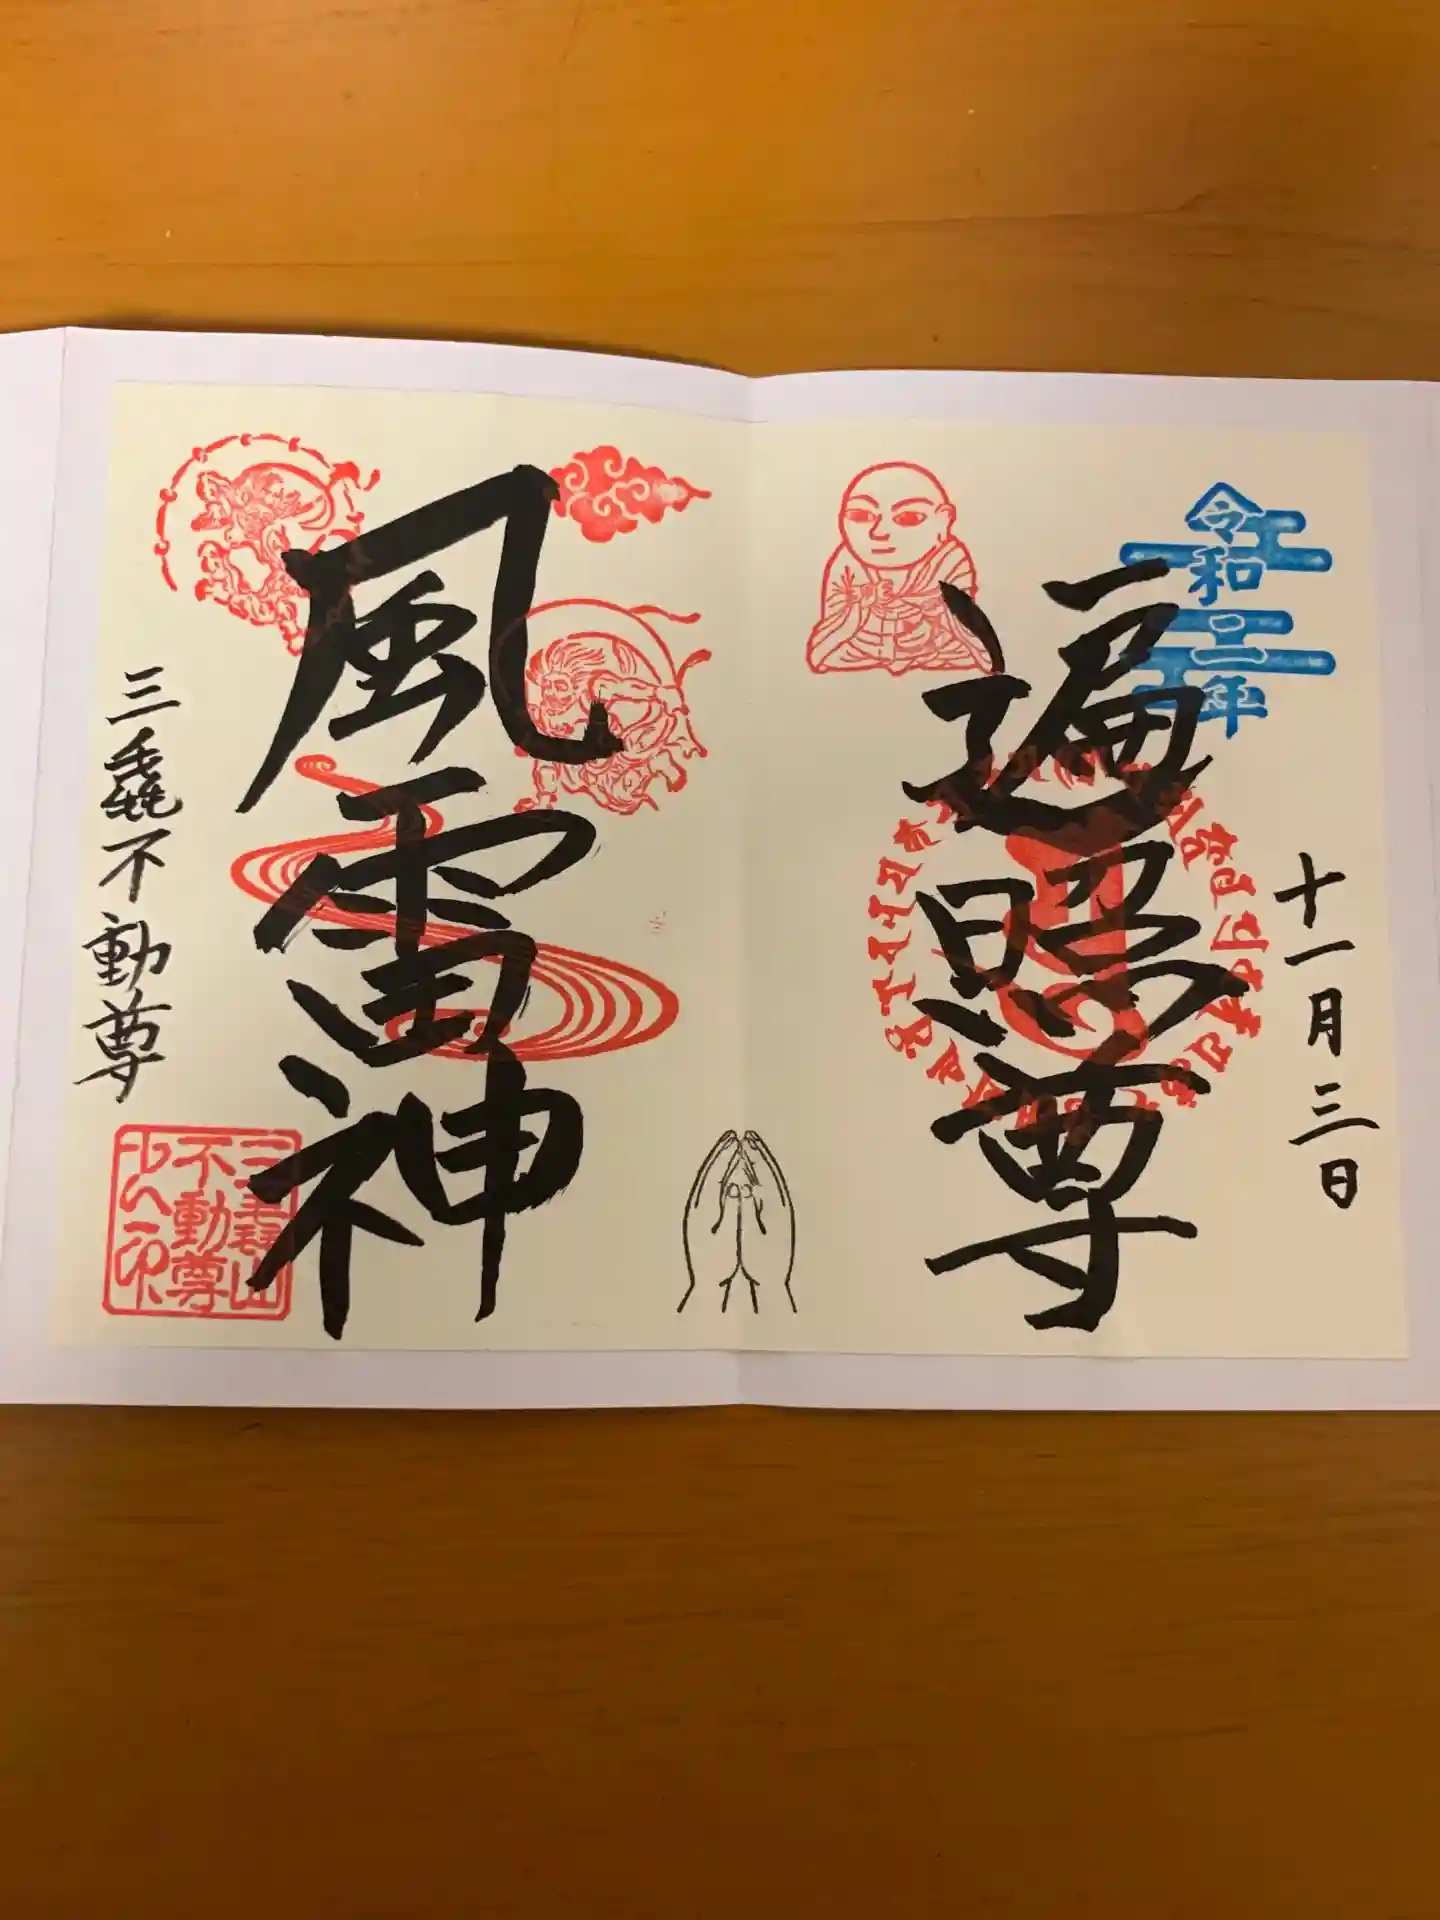 令和二年
十一月三日
遍照尊
風雷神
三毳不動尊
三毳山
不動尊